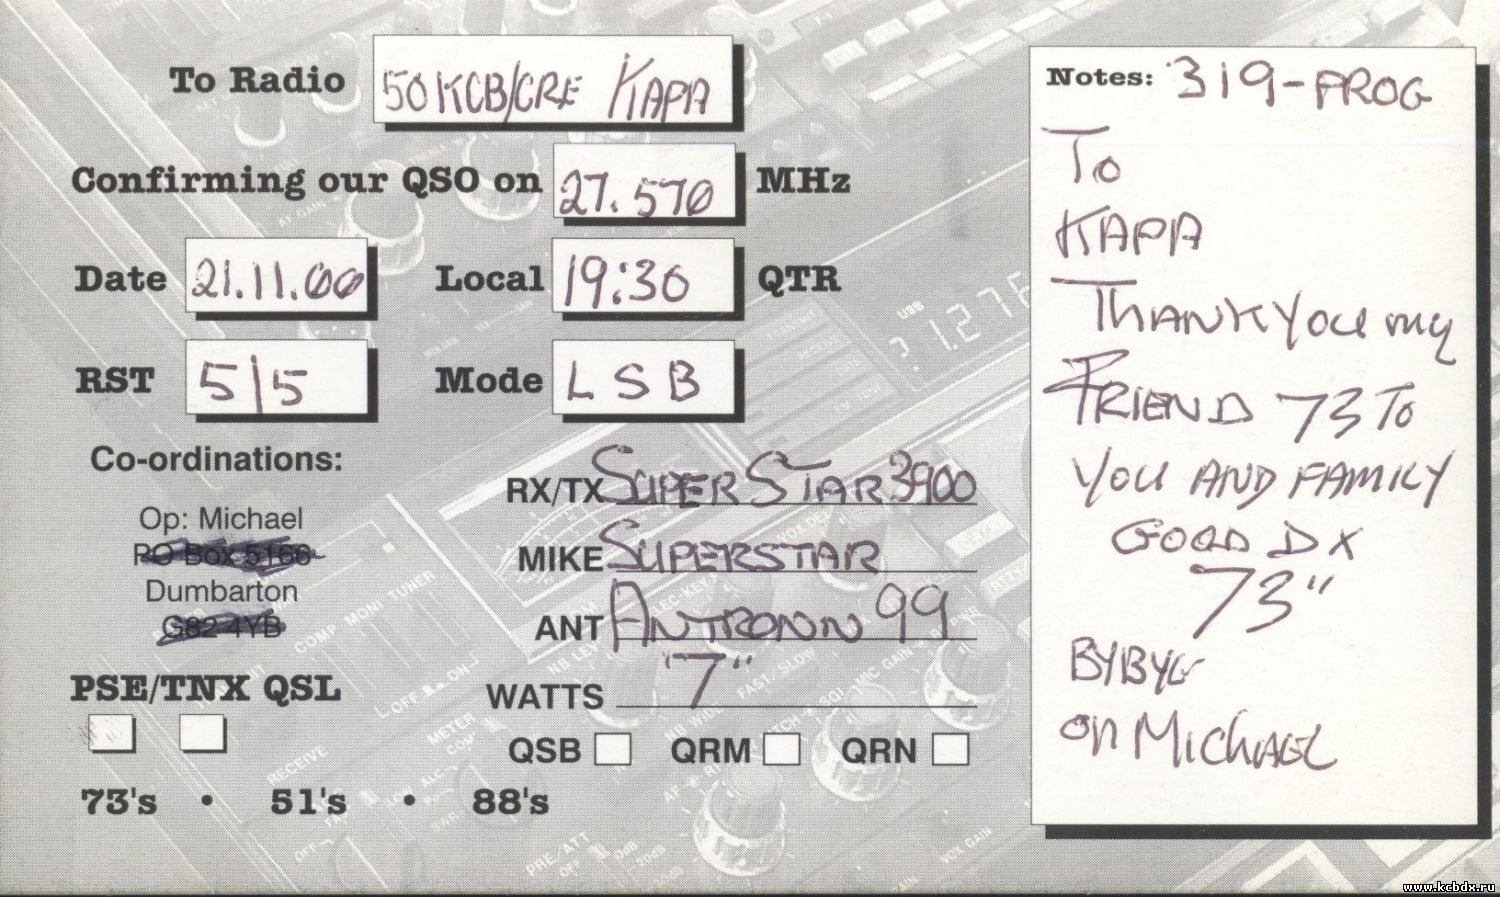 To Radio 50KCB/CRE KAPA
Confirming our QSO on 27.570 MHz
Date 21.11.00 Local 19:30 QTR
RST 5/5 Mode LSB
Co-ordinations:
Op: Michael
PO Box 5166
Dumbarton
G82 4YB
PSE/TNX QSL
73's • 51's • 88's
RX/TX SUPER STAR 3900
MIKE SUPERSTAR
ANT ANTRONN 99
WATTS "7"
QSB QRM QRN
Notes: 319-FROG
To
KAPA
THANK YOU my
FRIEND 73 To
YOU AND FAMILY
GOOD DX
73"
BYBYE
on MICHAEL
USB
1.276
www.kcbdx.ru